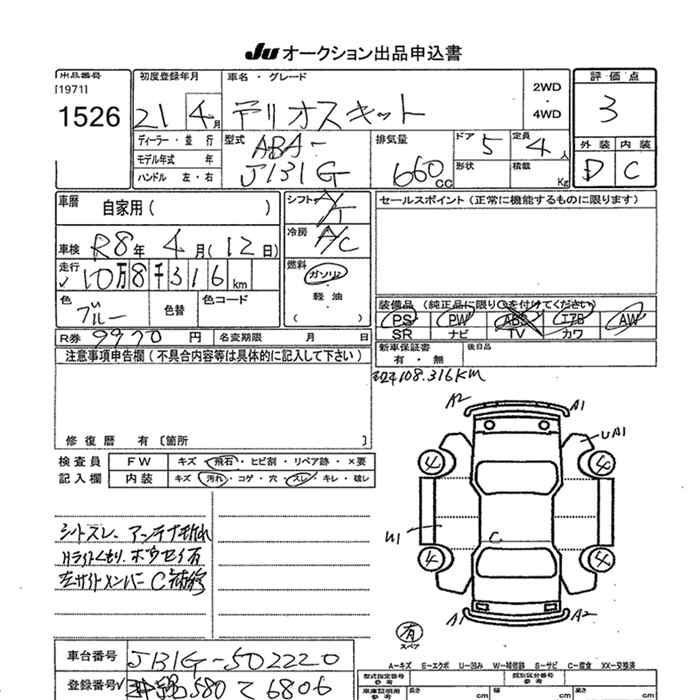 JU オークション出品申込書
出品番号 初度登録年月 車名・グレード 2WD 評価点
[1971]
1526 21 年 4月 テリオスキット ・4WD 3
ディーラー・並行 型式 排気量 ドア 定員 外装 内装
モデル年式 年 ABA- 5 4人 形状 積載
ハンドル 左・右 J131G 660cc Kg D C
車歴 自家用( ) シフト A/T セールスポイント(正常に機能するものに限ります)
車検 R8年 4月(12日) 冷房 A/C
走行 10万8千316km 燃料 ガソリン
色 ブルー 色替 色コード ・ 軽油 ・ ( )
装備品(純正品に限り○を付けてください)
PS PW ABS エアB AW
R券 9970 円 名変期限 月 日 SR ナビ TV カワ
注意事項申告欄(不具合内容等は具体的に記入して下さい) 新車保証書 後日品
有・無
108.316KM
修復歴 有〔箇所 〕
A2 A1
検査員 FW キズ・飛石・ヒビ割・リペア跡・×要 UA1
記入欄 内装 キズ・汚れ・コゲ・穴・スレ・キレ・破レ 4 4
シートスレ アンテナ折れ U1 C
Hライトくもり、ホウセイ有 4 4
左サイドメンバー C 補修
A1 A2
有
スペア
車台番号 J131G-502220 A-キズ E-エクボ U-凹み W-補修跡 S-サビ C-腐食 XX-交換済
登録番号 580 て 6806 型式指定番号 参考 類別区分番号 参考
車庫証明用 参考 長さ cm 幅 cm 高さ cm